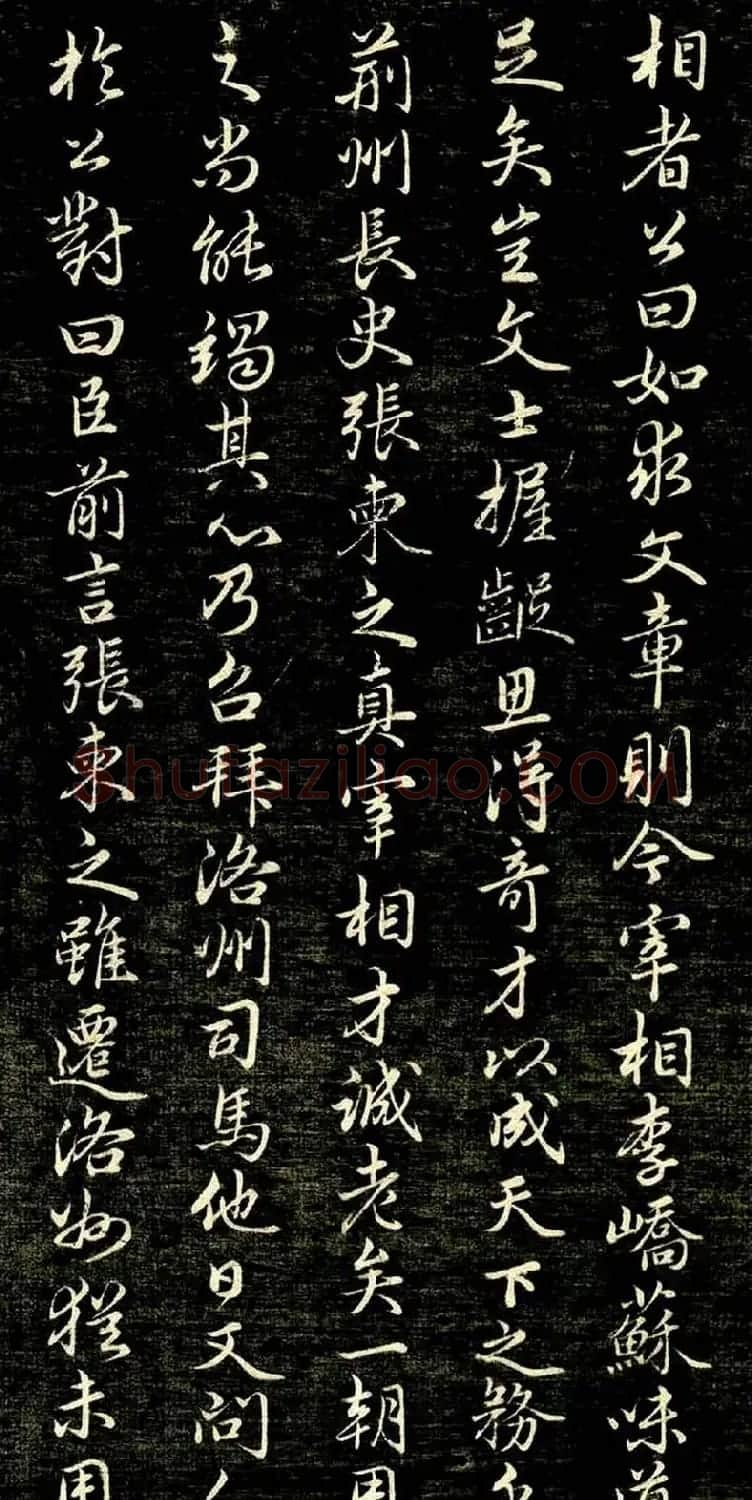 相者公曰如求文章則今宰相李嶠蘇味道
足矣豈文士握齪思得奇才以成天下之務
荊州長史張柬之真宰相才誠老矣一朝用
之尚能竭其心乃召拜洛州司馬他日又問
於公對曰臣前言張柬之雖遷洛州猶未用
shufaziliao.com